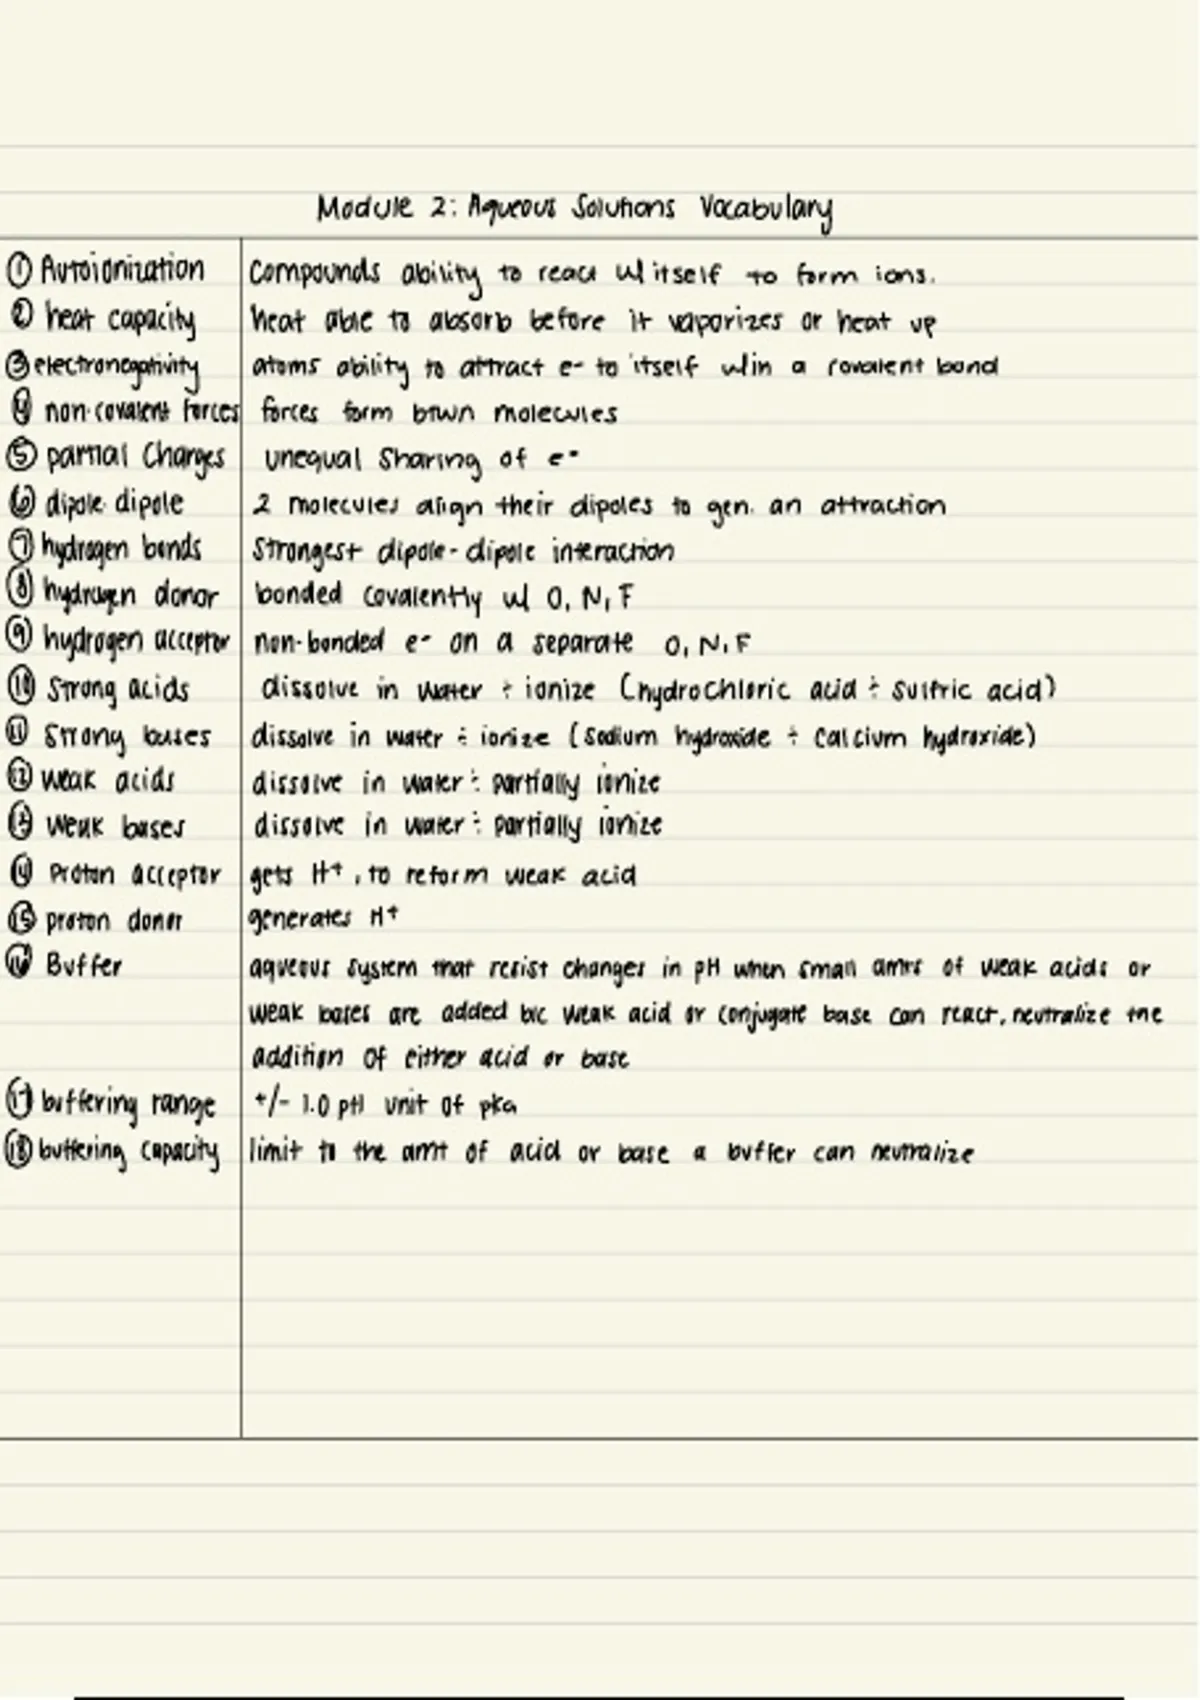 Module 2: Aqueous Solutions Vocabulary
① Autoionization Compounds ability to react w/ itself to form ions.
② heat capacity heat able to absorb before it vaporizes or heat up
③ electronegativity atoms ability to attract e- to itself w/in a covalent bond
④ non-covalent forces forces form btwn molecules
⑤ partial Charges unequal Sharing of e-
⑥ dipole-dipole 2 molecules align their dipoles to gen. an attraction
⑦ hydrogen bonds Strongest dipole-dipole interaction
⑧ hydrogen donor bonded covalently w/ O, N, F
⑨ hydrogen acceptor non-bonded e- on a separate O, N, F
⑩ Strong acids dissolve in water + ionize (hydrochloric acid + sulfric acid)
⑪ Strong bases dissolve in water + ionize (Sodium hydroxide + Calcium hydroxide)
⑫ weak acids dissolve in water + partially ionize
⑬ weak bases dissolve in water + partially ionize
⑭ Proton acceptor gets H+, to reform weak acid
⑮ proton donor generates H+
⑯ Buffer aqueous system that resist changes in pH when small amts of weak acids or
weak bases are added b/c weak acid or conjugate base can react, neutralize the
addition of either acid or base
⑰ buffering range +/- 1.0 pH unit of pka
⑱ buffering capacity limit to the amt of acid or base a buffer can neutralize